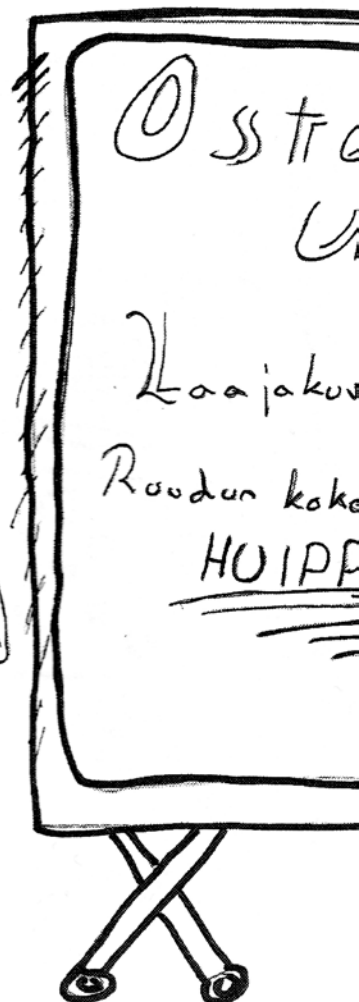 Osstr
U
Laajakuv
Ruudun koko
HUIPP